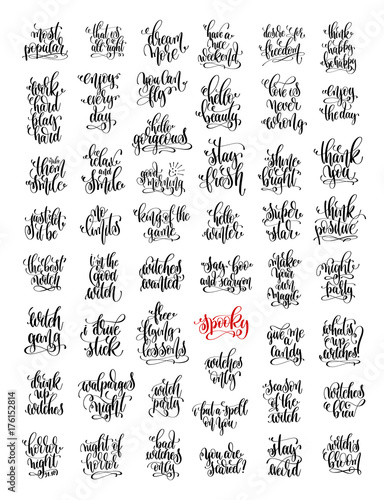 most
popular
that is
all right
dream
more
have a
nice
weekend
desire for
freedom
think
happy
be happy
work
hard
play
hard
enjoy
every
day
you can
fly
hello
beauty
love is
never
wrong
enjoy
the day
hello
gorgeous
then
smile
relax
and
smile
good
morning
stay
fresh
shine
bright
thank
you
just do it
no
limits
king of the
game
hello
winter
super
star
think
positive
the best
witch
i'm the
good
witch
witches
wanted
say boo
and scary on
make
your
own
magic
night
party
witch
gang
i drive
stick
free
flying
lessons
spooky
give me
candy
what's
up
witches?
drink
up
witches
walpurgis
night
witch
party
witches
only
i put a spell
on you
season
of the
witch
witches
bra
horror
night
night of
horror
bad
witches
only
you are
scared?
stay
weird
witch's
broom
Adobe Stock
#176152814